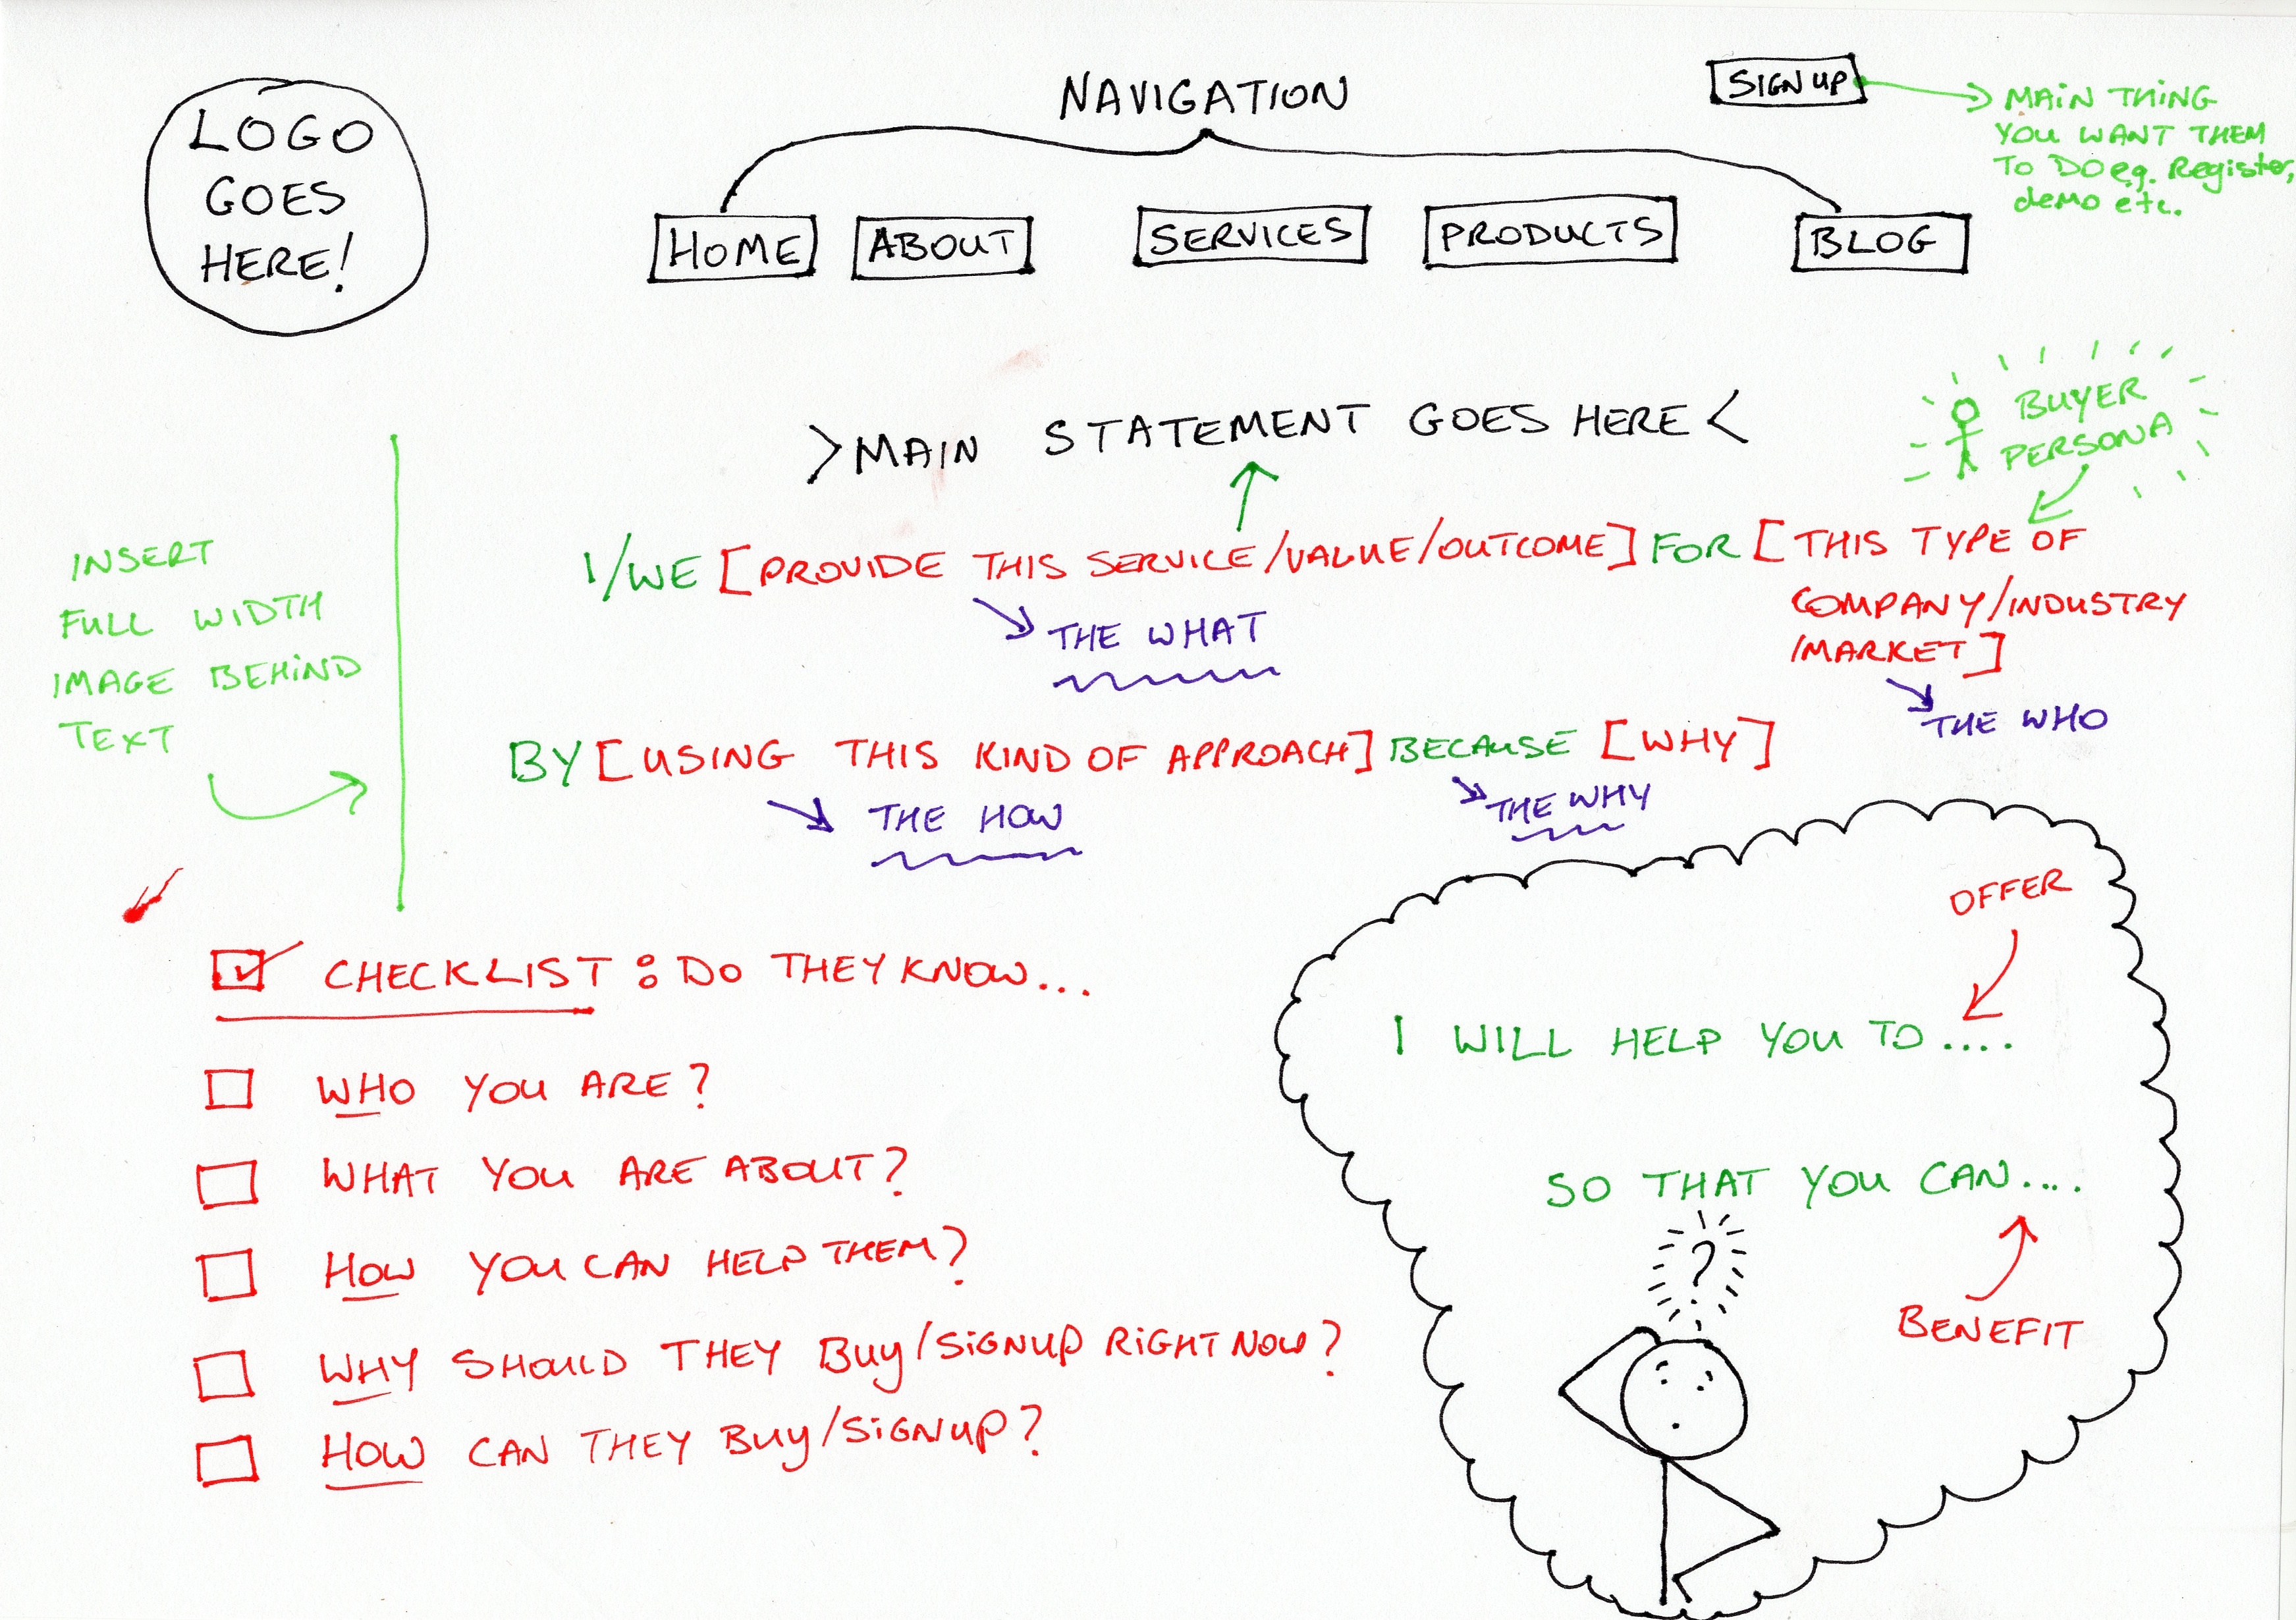 LOGO
GOES
HERE!
NAVIGATION
SIGN UP
MAIN THING
YOU WANT THEM
TO DO eg. Register,
demo etc.
HOME
ABOUT
SERVICES
PRODUCTS
BLOG
>MAIN STATEMENT GOES HERE<
BUYER
PERSONA
INSERT
FULL WIDTH
IMAGE BEHIND
TEXT
I/WE [PROVIDE THIS SERVICE/VALUE/OUTCOME] FOR [THIS TYPE OF
COMPANY/INDUSTRY
/MARKET]
THE WHAT
THE WHO
BY [USING THIS KIND OF APPROACH] BECAUSE [WHY]
THE HOW
THE WHY
CHECKLIST: DO THEY KNOW...
WHO YOU ARE?
WHAT YOU ARE ABOUT?
HOW YOU CAN HELP THEM?
WHY SHOULD THEY BUY/SIGNUP RIGHT NOW?
HOW CAN THEY BUY/SIGNUP?
OFFER
I WILL HELP YOU TO....
SO THAT YOU CAN....
?
BENEFIT